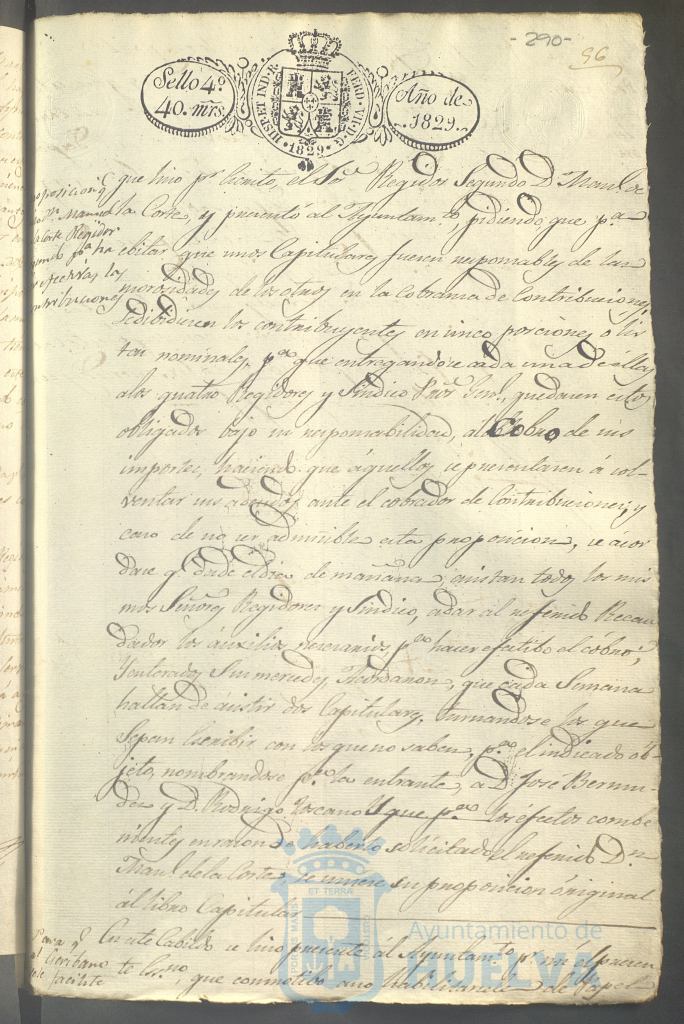 - 290 -
96
Sello 4º
40. mrs.
HISP. ET IND. R.
FERD. VII. D. G.
· 1829 ·
Año de
1829.
que hizo pr. Escrito, el Sor. Regidor Segundo Dn. Manl. de
la Corte, y presentó al Ayuntamto., pidiendo que pa.
ebitar que unos Capitulares fuesen responsables de las
morosidades de los otros en la Cobranza de Contribuciones,
se dibidiesen los contribuyentes en cinco porciones o lis
tas nominales, pa. que entregandose cada una de ellas
a los quatro Regidores y Sindico Pror. Gral., quedasen estos
obligados bajo su responsabilidad, al Cobro de sus
importes, haciendo que aquellos se presentaren á sol-
ventar sus adeudos ante el cobrador de Contribuciones; y
caso de no ser admisible esta proposicion, se acor
dase q. desde el dia de mañana, asistan todos los mis
mos Señores Regidores y Sindico, a dar al referido Recau
dador los áuxilios necesarios, pa. hacer efectibo el cobro;
Y enterados Sus mercedes, Acordaron, que cada Semana
hallan de ásistir dos Capitulares, turnandose los que
Sepan Escribir con los que no saben, pa. el indicado ob-
jeto, nombrandose pa. la entrante, a D. Jose Bermu-
dez y D. Rodrigo Toscano Y que pa. los éfectos combe
nientes en razon de haberlo solicitado el referido Dn.
Manl. de la Corte, se uniese su proposicion óriginal
al libro Capitular
En este Cabildo se hizo presente al Ayuntamto. pr. mi el presen
te Esno., que con motibo á no habilitarsele de Papel
Proposicion q.
Dn. Manuel
la Corte Regidor
segundo pa. ha
cer efectivas las
contribuciones
Para q.
al Escribano
se le facilite
PORTUS MARIS
ET TERRE
CUSTODIA
Ayuntamiento de
HUELVA